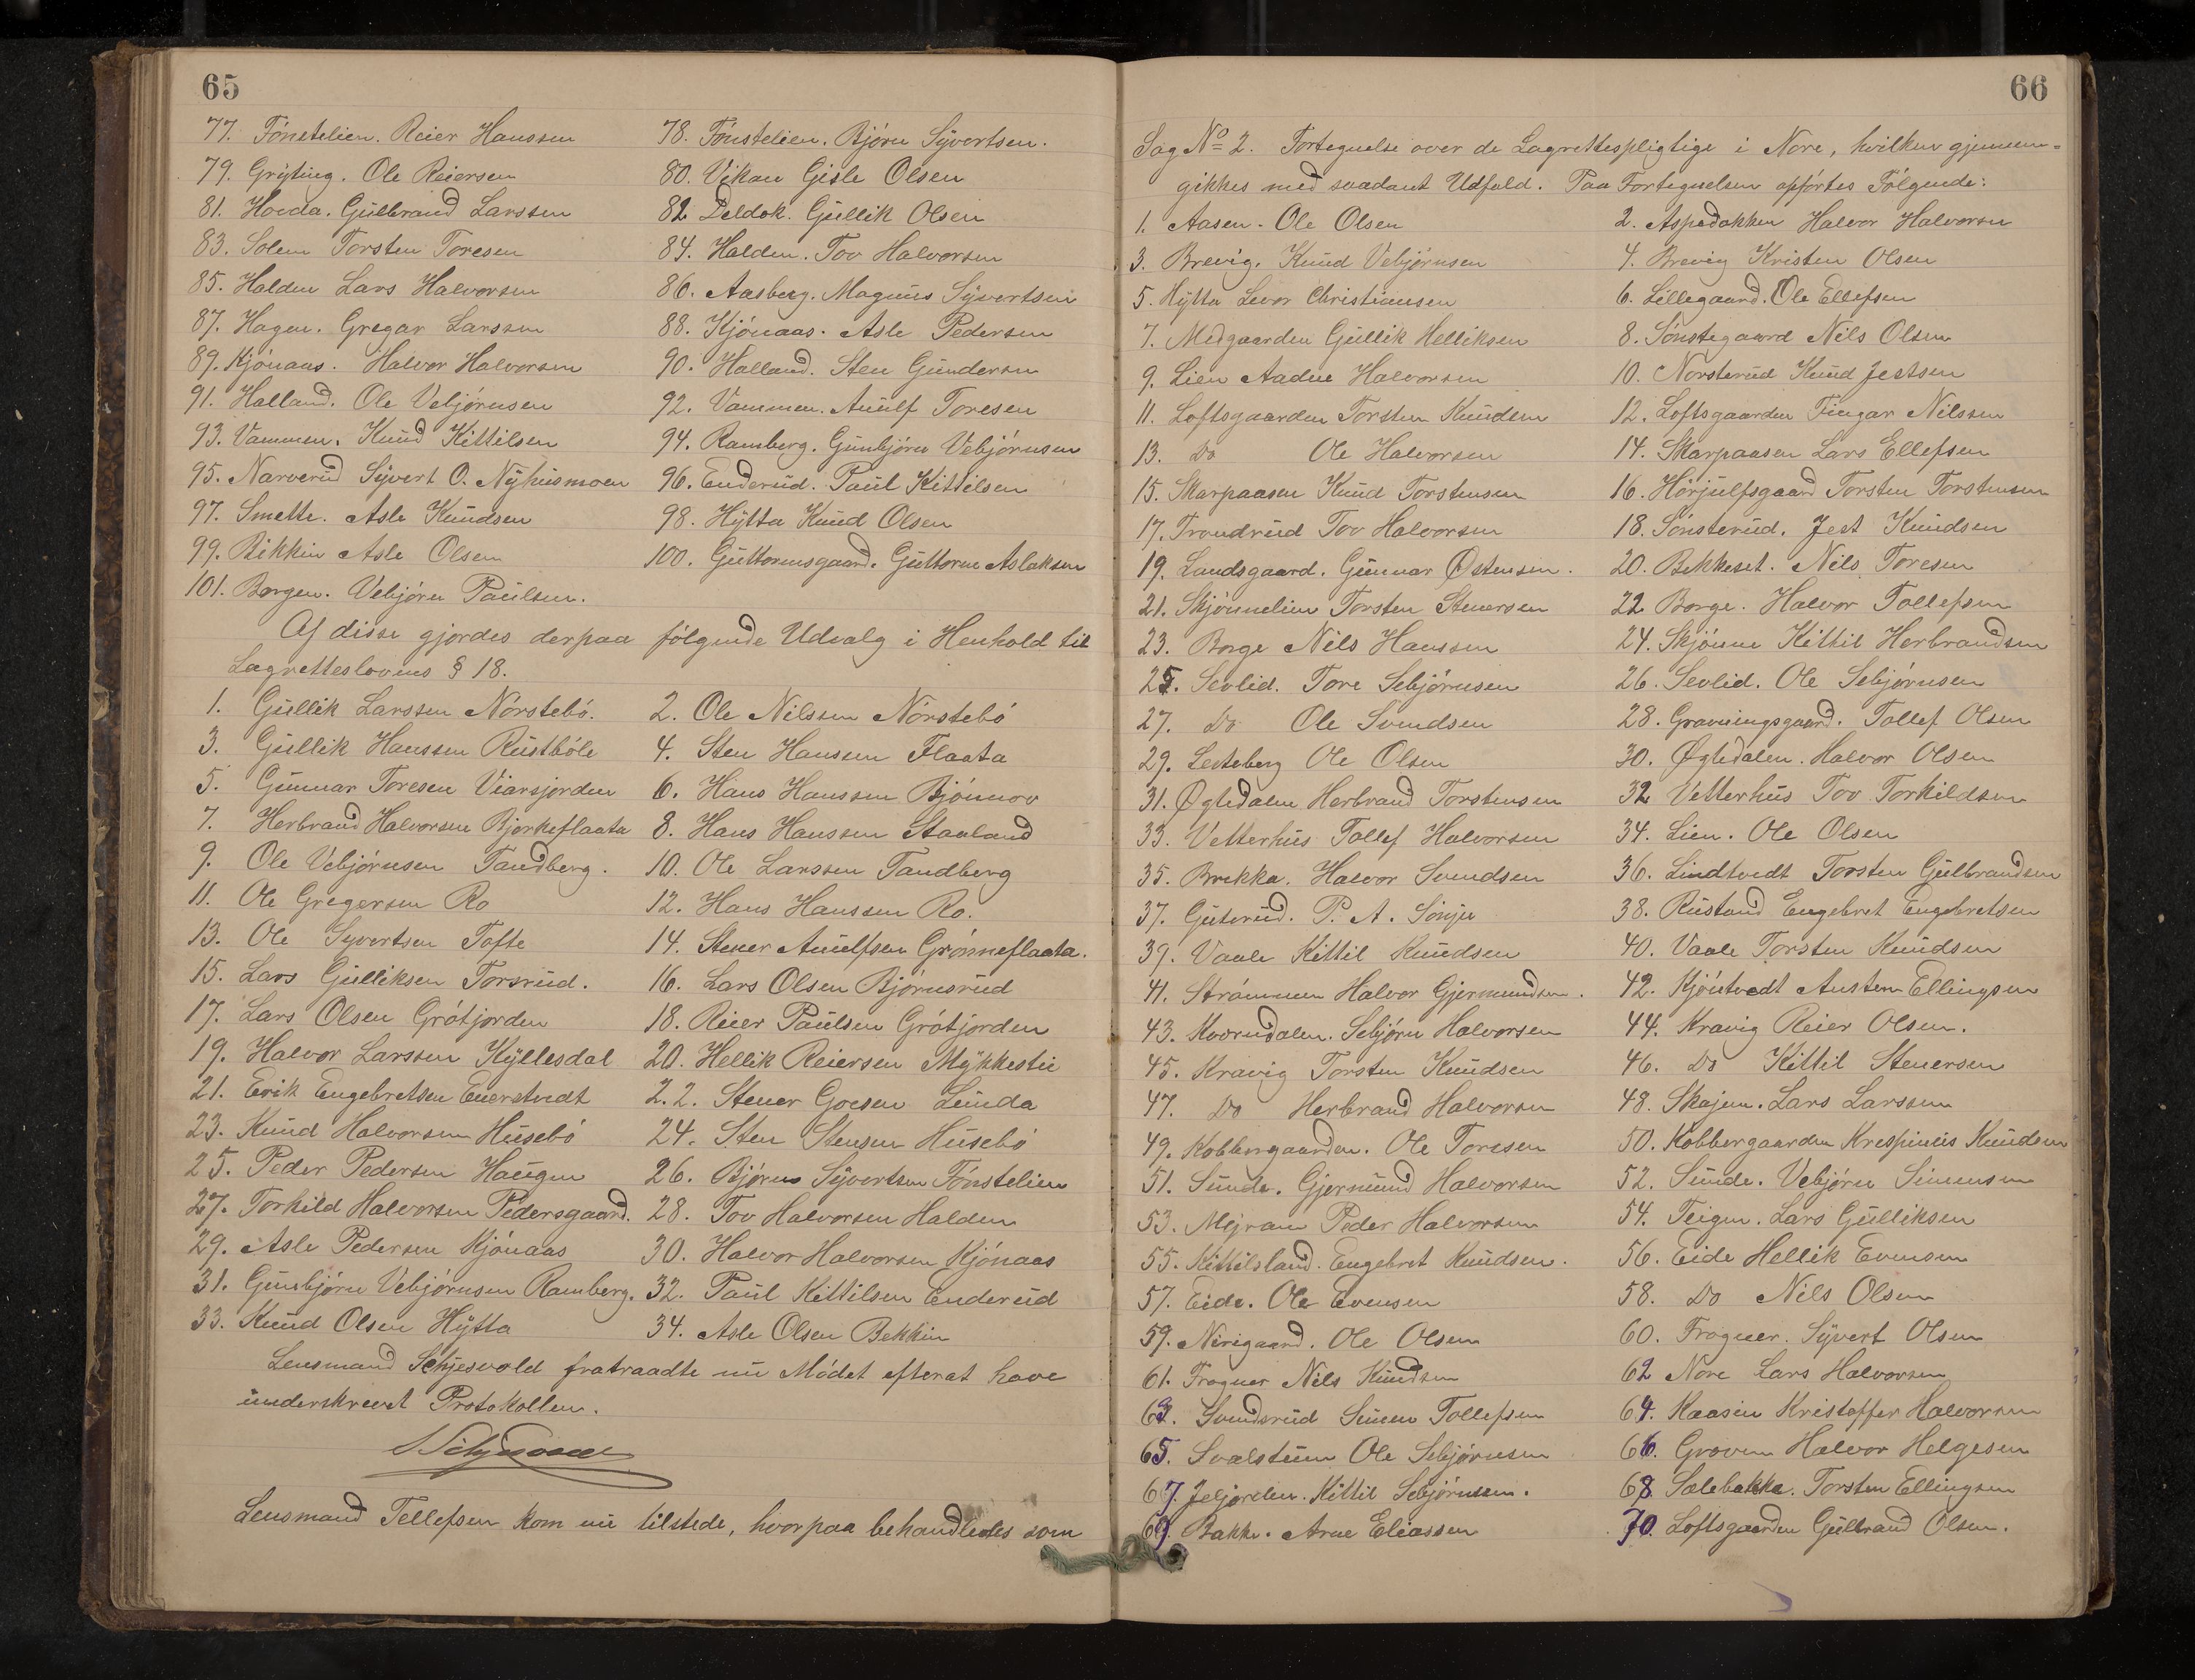 65
77. Fónstelien. Reier Hanssen 78. Fónstelien. Bjórn Syvertsen.
79. Gryting. Ole Reiersen 80. Vikan Gisle Olsen
81. Hovda. Gulbrand Larssen 82 Deldok. Gullik Olsen
83. Solem Torsten Toresen 84. Halden. Tov Halvorsen
85. Halden Lars Halvorsen 86. Aasberg. Magnus Syvertsen
87. Hagen. Gregar Larssen 88. Kjónaas. Asle Pedersen
89. Kjónaas. Halvor Halvorsen 90. Halland. Sten Gundersen
91. Halland. Ole Vebjórnsen 92. Vammen. Anulf Toresen
93. Vammen. Knud Kittilsen 94. Ramberg. Gunbjórn Vebjórnsen
95. Narverud Syvert O. Nyhusmoen 96. Enderud. Paul Kittilsen
97. Smette. Asle Knudsen 98. Hytta Knud Olsen
99. Bekkin Asle Olsen 100. Guttormsgaard. Guttorm Aslaksen
101. Borgen. Vebjórn Paulsen.
Af disse gjordes derpaa fólgende Udvalg i Henhold til
Lagretteslovens § 18.
1. Gullik Larssen Nórstebó. 2. Ole Nilssen Nórstebó
3. Gullik Hanssen Rustbóle 4. Sten Hansen Flaata
5. Gunnar Toresen Viarsjorden 6. Hans Hanssen Bjónnov
7. Herbrand Halvorsen Bjorkeflaata 8. Hans Hanssen Staaland
9. Ole Vebjórnsen Tandberg. 10. Ole Larssen Tandberg
11. Ole Gregersen Ro 12. Hans Hanssen Ro.
13. Ole Syvertsen Tofte 14. Stener Anulfsen Grónneflaata.
15. Lars Gulliksen Torsrud. 16. Lars Olsen Bjórnsrud
17. Lars Olsen Grótjorden 18. Reier Paulsen Grótjorden
19. Halvor Larssen Kyllesdal 20. Hellik Reiersen Mykkestu
21. Erik Engebretsen Enerstvedt 22. Stener Goesen Lunda
23. Knud Halvorsen Husebó 24. Sten Stensen Husebó
25. Peder Pedersen Haugen 26. Bjórn Syvertsen Fónstelien
27. Torkild Halvorsen Pedersgaard. 28. Tov Halvorsen Halden
29. Asle Pedersen Kjónaas 30. Halvor Halvorsen Kjónaas
31. Gunbjórn Vebjórnsen Ramberg. 32. Paul Kittilsen Enderud
33. Knud Olsen Hytta 34. Asle Olsen Bekkin
Lensmand Schjesvold fratraadte nu Módet efterat have
underskrevet Protokollen.
Lensmand Tellefsen kom nu tilstede, hvorpaa behandledes som
66
Sag No 2. Fortegnelse over de Lagrettespligtige i Nore, hvilken gjennem=
gikkes med saadant Udfald. Paa Fortegnelsen opfórtes Fólgende:
1. Aasen. Ole Olsen 2. Aspedokken Halvor Halvorsen
3. Brevig. Knud Vebjórnsen 4. Brevig Kristen Olsen
5. Hytta Levor Christiansen 6. Lillegaard. Ole Ellefsen
7. Medgaarden Gullik Helliksen 8. Sónstegaard Nils Olsen
9. Lien Aadne Halvorsen 10. Norsterud Knud Jestsen
11. Loftsgaarden Torsten Knudsen 12. Loftsgaarden Fingar Nilssen
13. Do Ole Halvorsen 14. Skarpaasen Lars Ellefsen
15. Skarpaasen Knud Torstensen 16. Hórjulfsgaard Torsten Torstensen
17. Trondrud Tov Halvorsen 18. Sónsterud. Jest Knudsen
19. Landsgaard. Gunnar Østensen. 20. Bekkeset. Nils Toresen
21. Skjónnelien Torsten Stenersen 22 Borge. Halvor Tollefsen
23. Borge Nils Hanssen 24. Skjónne Kittil Herbrandsen
25. Sevlid. Tore Sebjórnsen 26. Sevlid. Ole Sebjórnsen
27. Do Ole Svendsen 28. Gravningsgaard. Tollef Olsen
29. Lesteberg Ole Olsen 30. Øgledalen. Halvor Olsen
31. Øgledalen Herbrand Torstensen 32 Vetterhus Tov Torkildsen
33. Vetterhus Tollef Halvorsen 34. Lien. Ole Olsen
35. Brekka. Halvor Svendsen 36. Lindtvedt Torsten Gulbrandsen
37. Guterud. P. A. Sónju 38. Rustand Engebret Engebretsen
39. Vaale Kittil Knudsen 40. Vaale Torsten Knudsen
41. Strómmen Halvor Gjermundsen. 42. Kjóntvedt Austen Ellingsen
43. Kvorndalen. Sebjórn Halvorsen 44. Kravig Reier Olsen.
45. Kravig Torsten Knudsen 46. Do Kittil Stenersen
47. Do Herbrand Halvorsen 48. Skajem. Lars Larssen
49. Kobbergaarden. Ole Toresen 50. Kobbergaarden Krespinius Knudsen
51. Sunde. Gjermund Halvorsen 52. Sunde. Vebjórn Simensen
53. Mejram Peder Halvorsen 54. Teigen. Lars Gulliksen
55. Kittilsland. Engebret Knudsen. 56. Eide Hellik Evensen
57. Eide. Ole Evensen 58. Do Nils Olsen
59. Nerigaard. Ole Olsen 60. Frogner. Syvert Olsen
61. Frogner Nils Knudsen 62 Nore Lars Halvorsen
63. Svendsrud Simen Tollefsen 64. Kaasin Kristoffer Halvorsen
65. Svalstuen Ole Sebjórnsen 66. Groven Halvor Helgesen
67. Jeljorden. Kittil Sebjórnsen. 68 Solebakka. Torsten Ellingsen
69. Bakke. Arne Eliassen 70. Loftsgaarden Gulbrand Olsen.